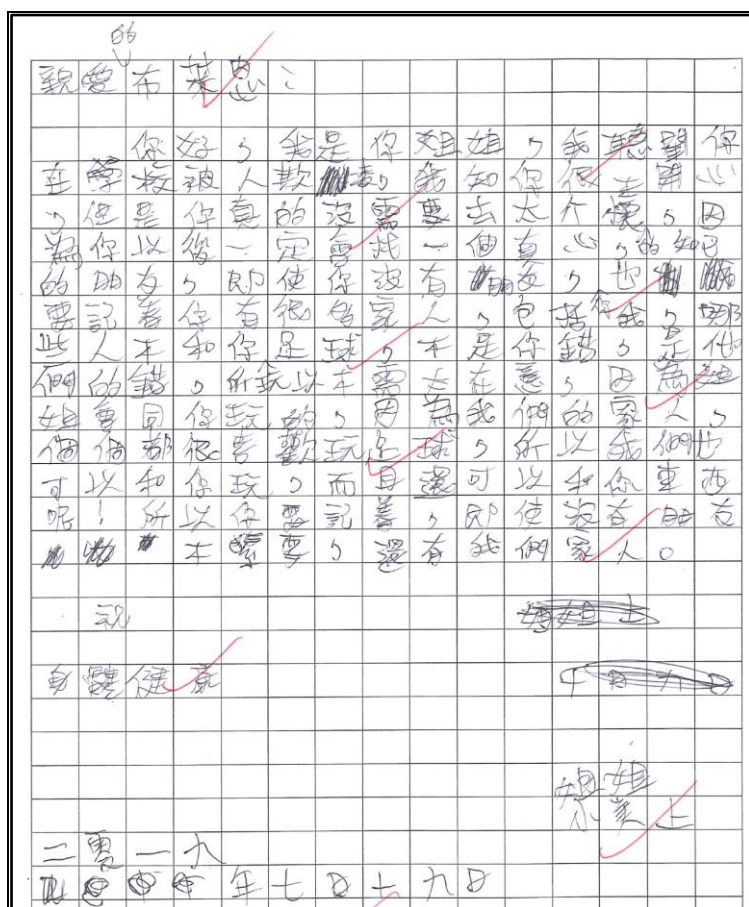 親愛的布萊恩：
你好，我是你姐姐，我聽聞你
在學校被人欺，我知你很生氣
，但是你真的沒需要去太介懷，因
為你以後一定會找一個真心，的知己
的朋友，即使你沒有朋友，也
要記着你有很多家人，包括你我，那
些人不和你足球，不是你錯，是他
們的錯，所以不需太在意，因為姐
姐會同你玩的，因為我們的家人，
個個都很喜歡玩足球，所以我們也
可以和你玩，而且還可以和你東西
呢！所以你要記着，即使沒有朋友
不緊要，還有我們家人。
祝
身體健康
姐姐
小美上
二零一九
年七月十九日